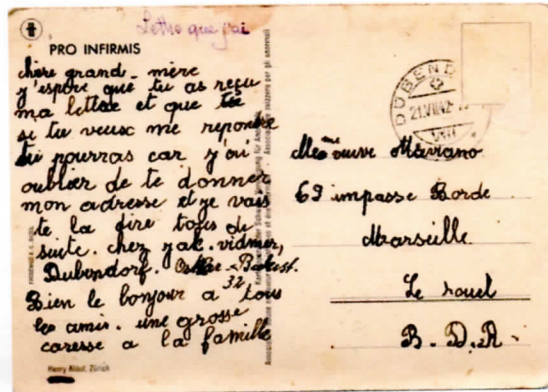 Lettre que j'ai
PRO INFIRMIS
chère grand-mère
j'espère que tu as reçu
ma lettre et que
si tu veux me repondre
tu pourras car j'ai
oublier de te donner
mon adresse et je vais
te la dire tous de
suite. chez jak. vidmer,
Dubendorf.
32
Bien le bonjour a tous
les amis. une grosse
caresse a la famille
Henry Zürich
DÜBENDO
21.VII.42
veuve Mariano
69 impasse Borde
Marseille
Le rouet
B.D.R